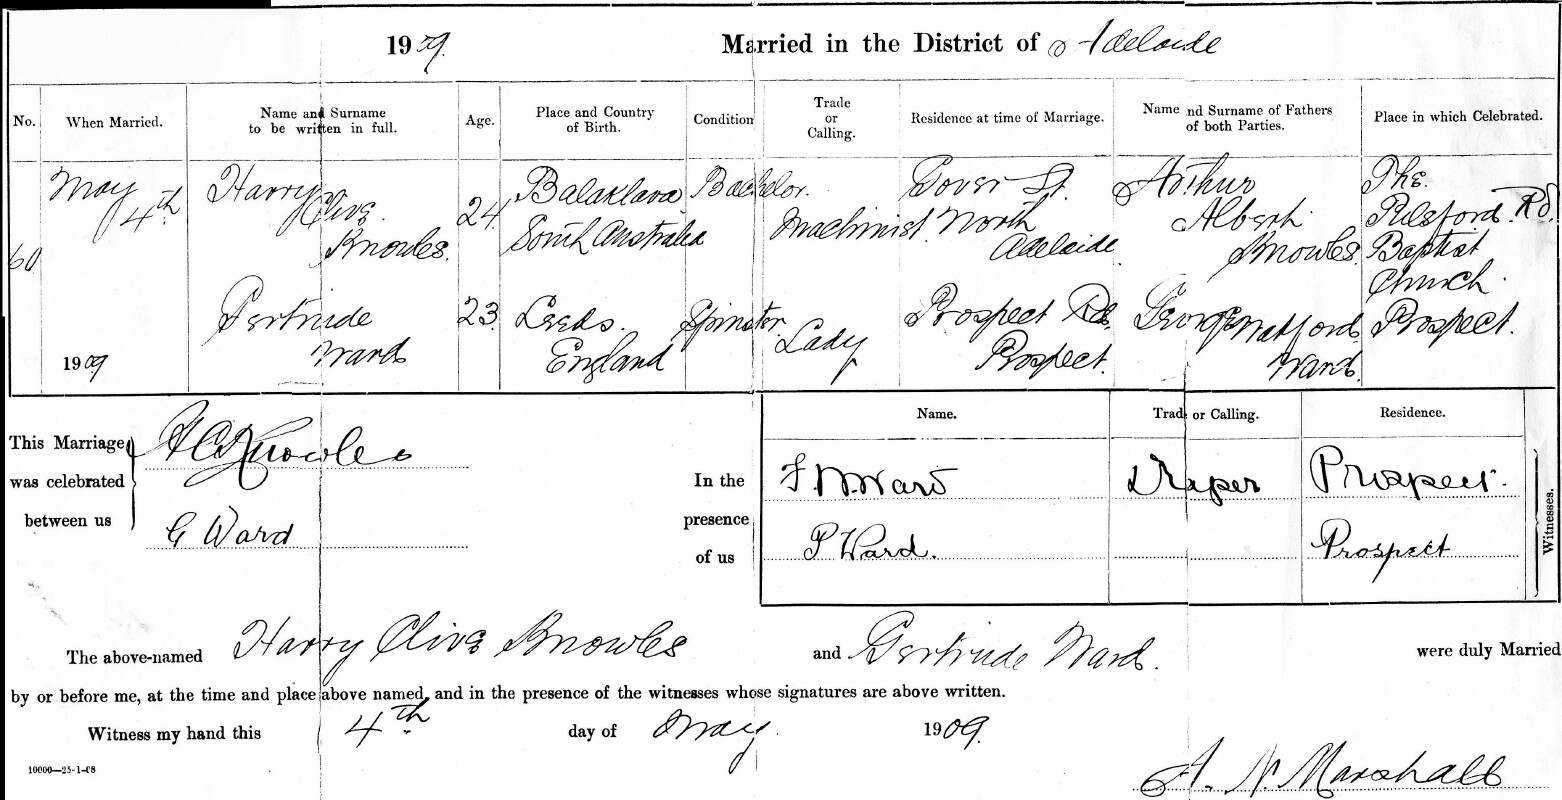 1909. Married in the District of Adelaide
No. When Married. Name and Surname to be written in full. Age. Place and Country of Birth. Condition Trade or Calling. Residence at time of Marriage. Name and Surname of Fathers of both Parties. Place in which Celebrated.
60
May 4th
1909
Harry
Clive
Knowles.
24
Balaklava
South Australia
Bachelor.
Machinist
Gover St.
North
Adelaide
Arthur
Albert
Knowles
The
Pulsford Rd.
Baptist
Church
Prospect.
Gertrude
Ward
23
Leeds.
England
Spinster
Lady
Prospect Rd.
Prospect.
George Watford
Ward.
This Marriage
was celebrated
between us
H C Knowles
G Ward
In the
presence
of us
Name. Trade or Calling. Residence.
F. W. Ward Draper Prospect.
P Ward. Prospect
Witnesses.
The above-named Harry Clive Knowles and Gertrude Ward. were duly Married
by or before me, at the time and place above named, and in the presence of the witnesses whose signatures are above written.
Witness my hand this 4th day of May. 1909.
10000—25-1-08
A. N. Marshall